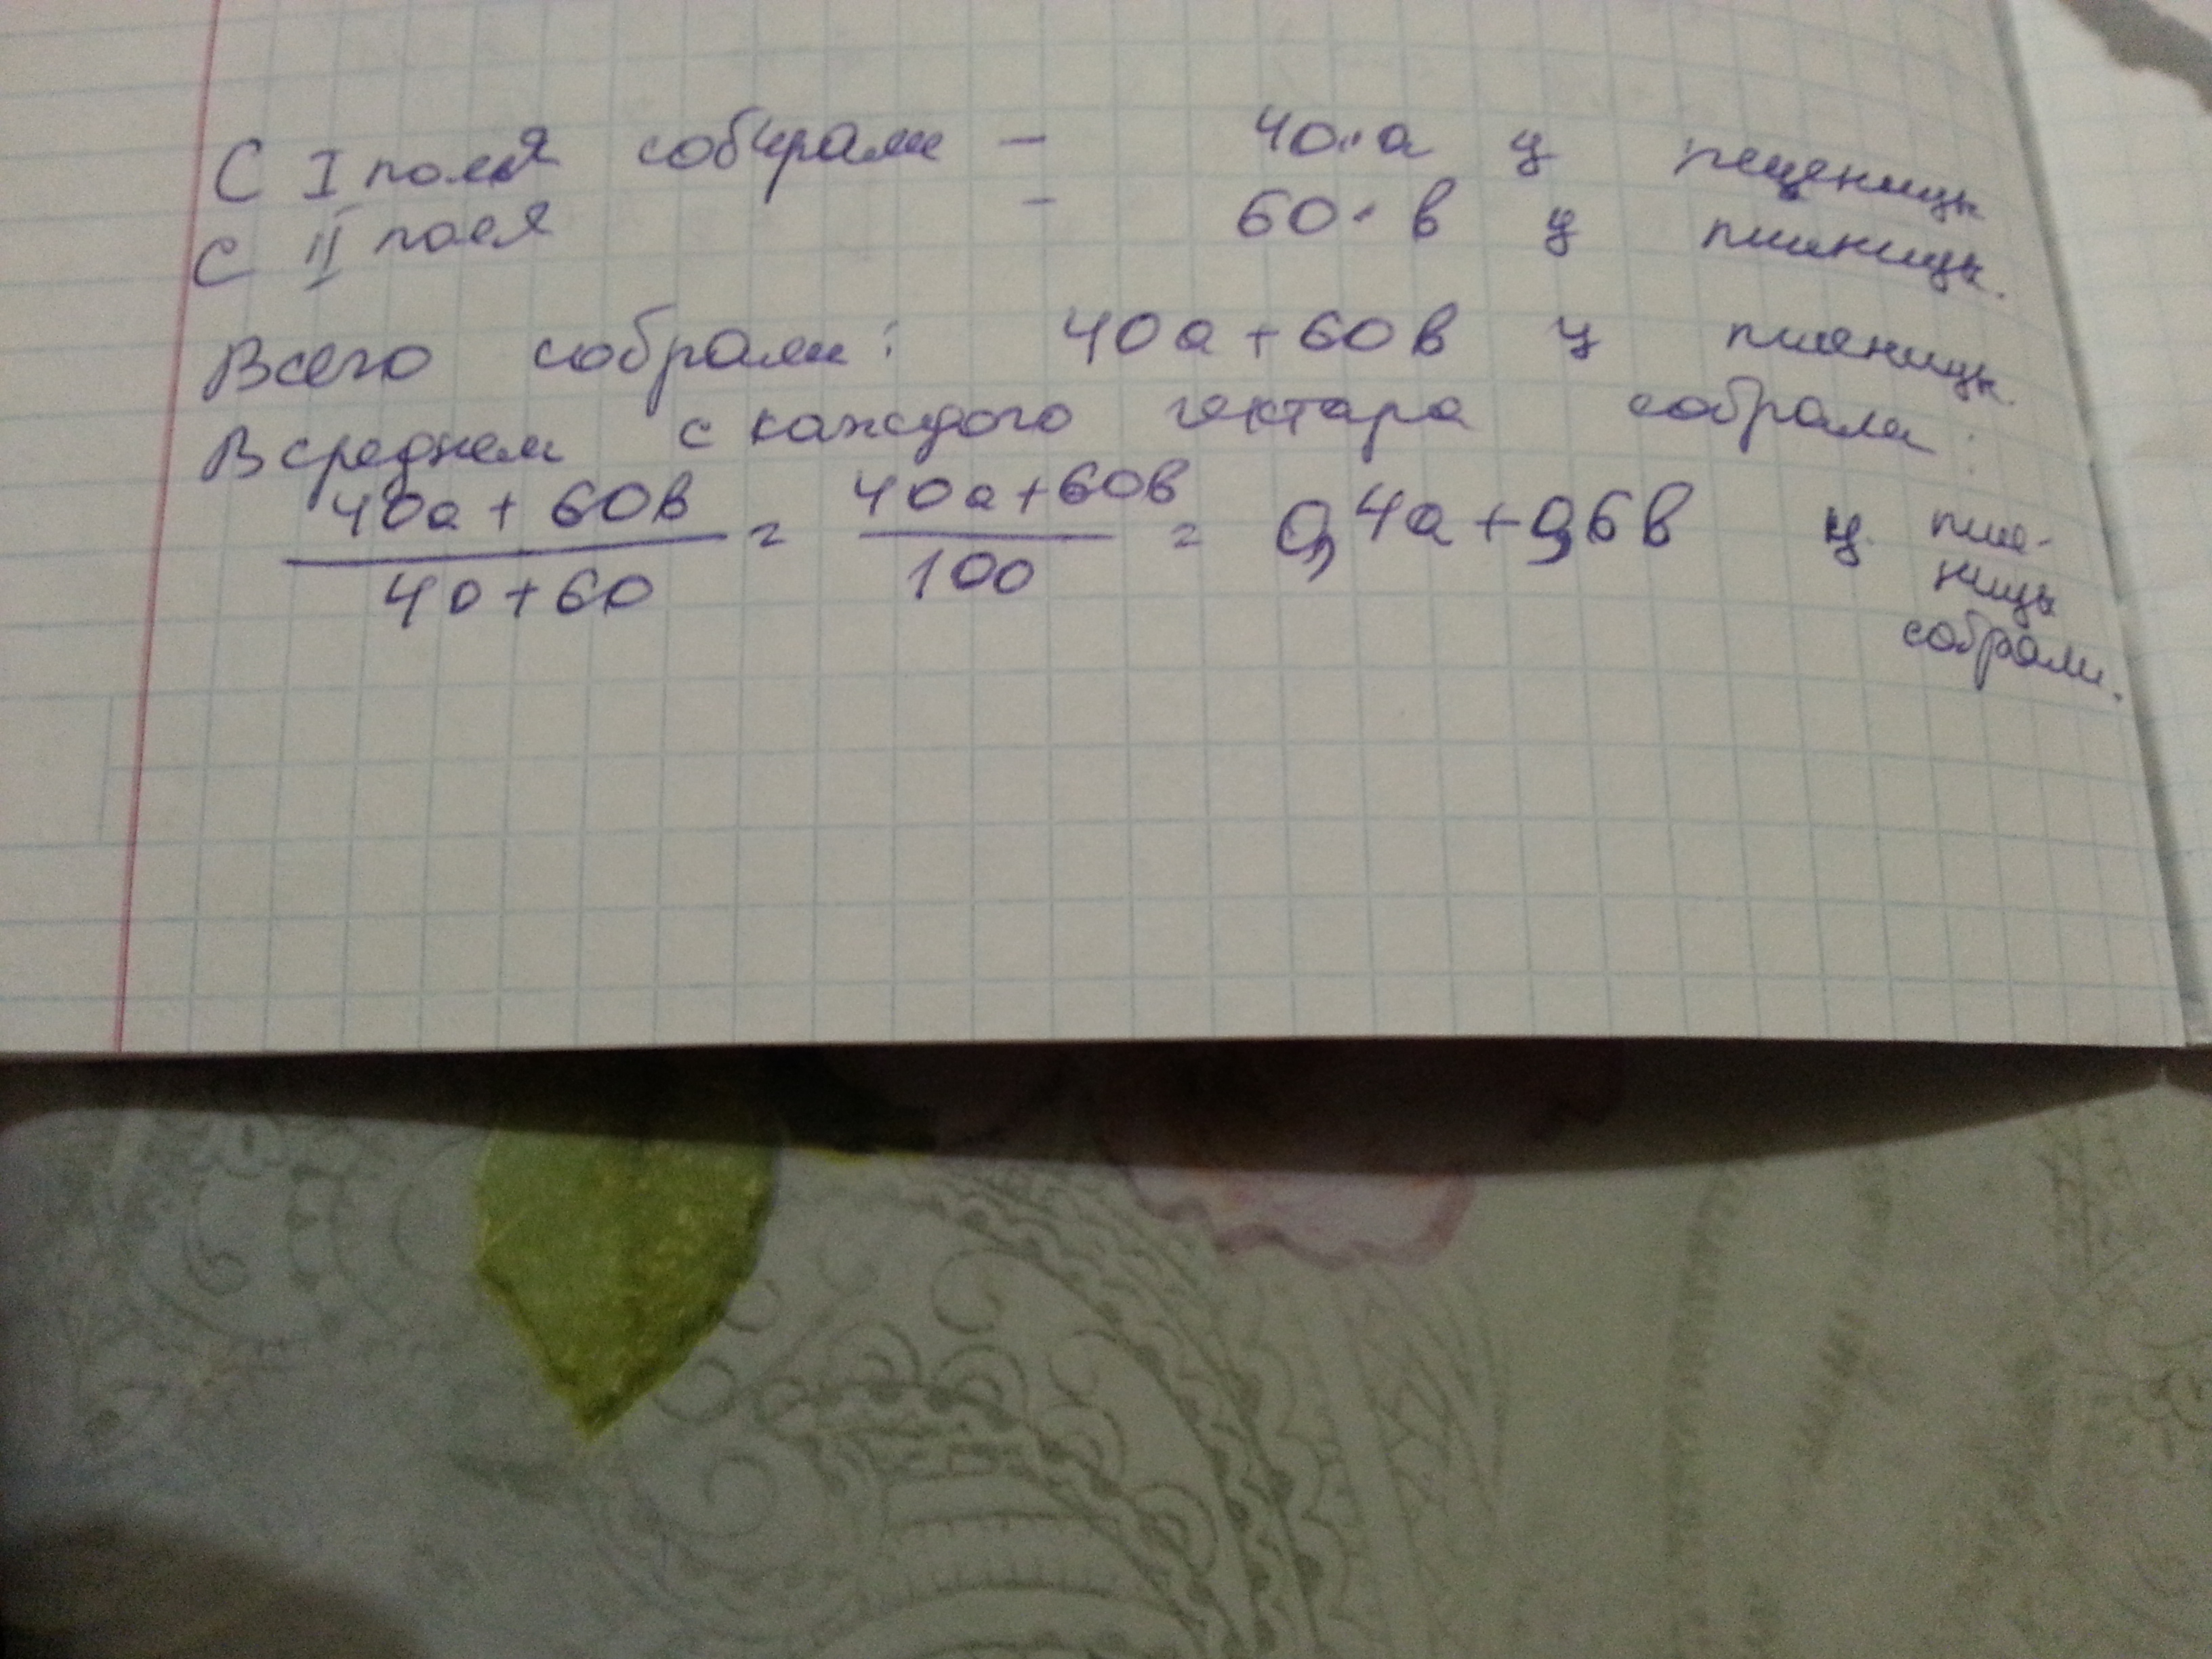 С I поля собирали - 40·а ц пшеницы
С II поля - 60·в ц пшеницы.
Всего собрали: 40а+60в ц пшеницы.
В среднем с каждого гектара собрали:
40а+60в / 40+60 = 40а+60в / 100 = 0,4а+0,6в ц пше-
ницы
собрали.